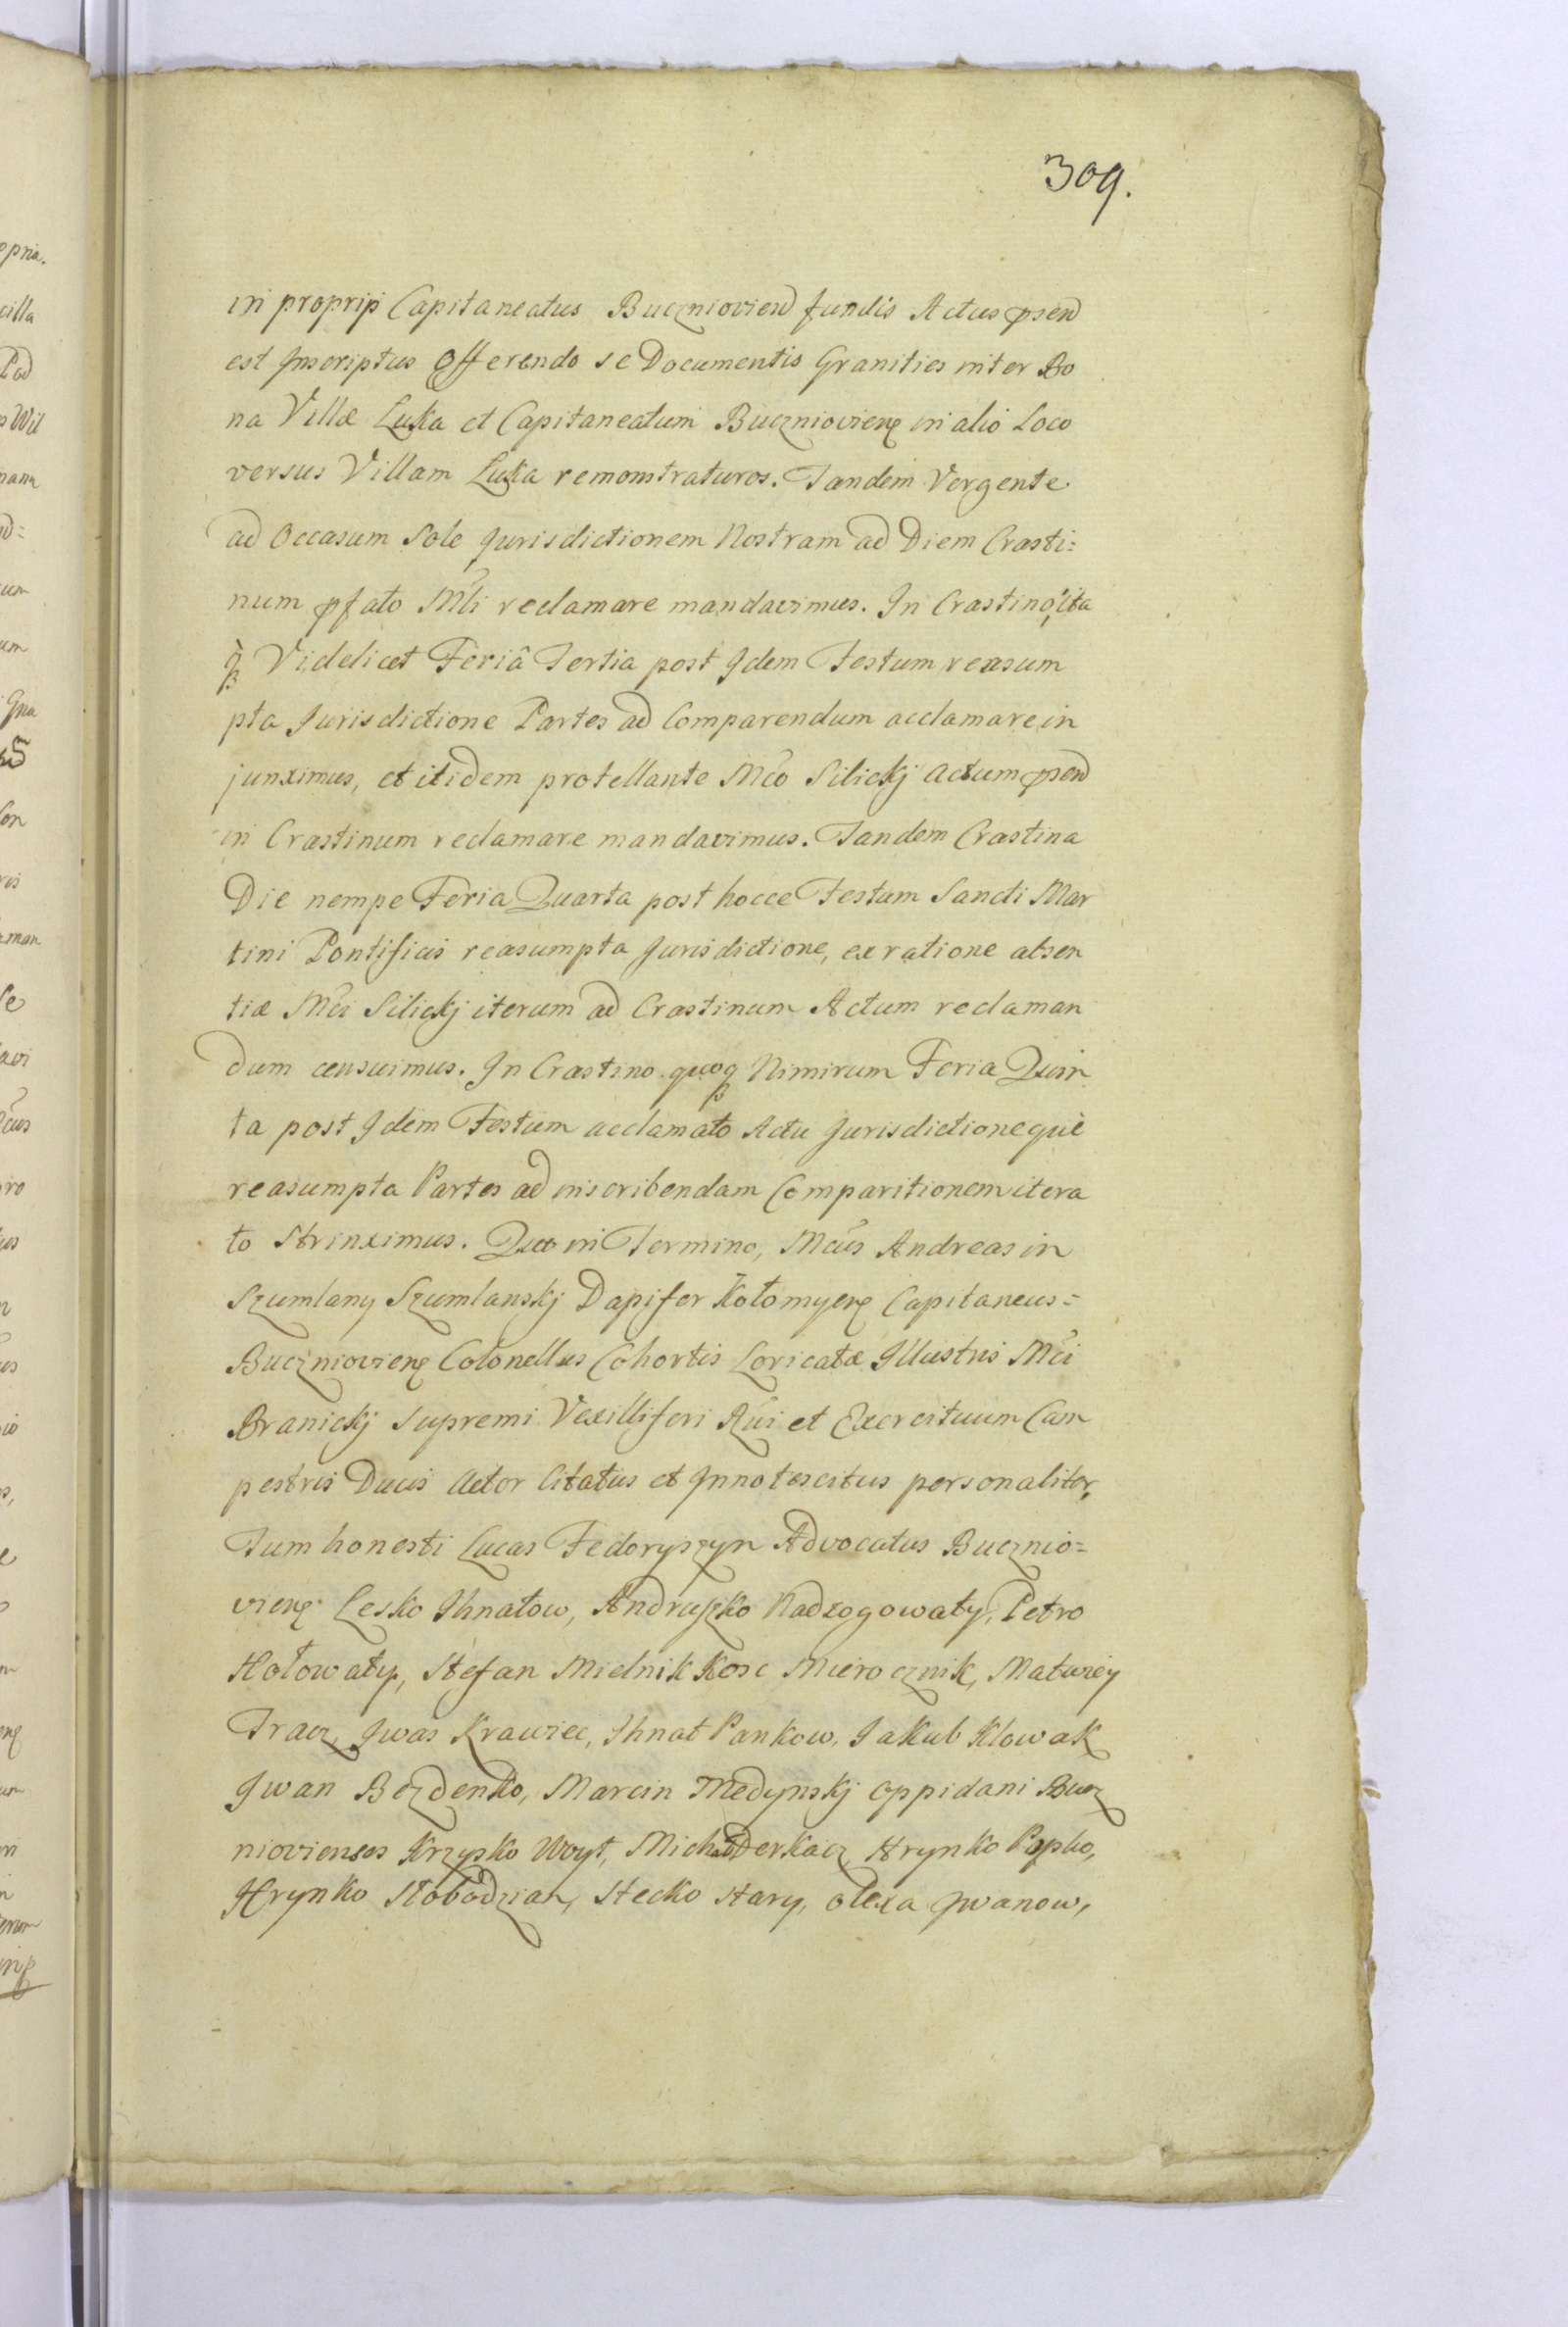 309.
in proprijs Capitaneatus Buczniovien fundis Actus pñsen
est Inscriptus Offerendo se Documentis Granities inter Bo
na Villæ Luka et Capitaneatum Buczniovien in alio Loco
versus Villam Luka remonstraturos. Tandem Vergente
ad Occasum Sole Jurisdictionem Nostram ad Diem Crasti=
num pfato Mli reclamare mandavimus. In Crastino, ita
q Videlicet Feriâ Tertia post Idem Festum reasum
pta Jurisdictione Partes ad Comparendum acclamare in
junximus, et itidem protellante Mco Silickj Actum pñsen
in Crastinum reclamare mandavimus. Tandem Crastina
Die nempe Feria Quarta post hocce Festum Sancti Mar
tini Pontificis reasumpta Jurisdictione, ex ratione absen
tiæ Mci Silickj iterum ad Crastinum Actum reclaman
dum censuimus. In Crastino quoq Nimirum Feria Quin
ta post Idem Festum acclamato Actu Jurisdictioneque
reasumpta Partes ad inscribendam Comparitionem itera
to Strinximus. Quo in Termino, Mcus Andreas in
Szumlany Szumlanskj Dapifer Kołomyen Capitaneus=
Buczniovien Colonellus Cohortis Loricatæ Illustris Mci
Branickj Supremi Vexilliferi Rni et Exercituum Cam
pestris Ducis Actor Citatus et Innotescitus personaliter,
Tum honesti Lucas Fedoryszyn Advocatus Bucznio=
vien Lesko Ihnatow, Andruszko Nadrogowaty, Petro
Hołowaty, Stefan Mielnik Kosc Mirocznik, Matwiey
Tracz, Iwas Krawiec, Ihnat Pankow, Jakub Klowak
Iwan Bezdenko, Marcin Medynskj oppidani Bucz
niovienses Krzysko Woyt, Michał Derkacz, Hrynko Popko,
Hrynko Słobodzian, Stecko Stary, Olexa Iwanow,